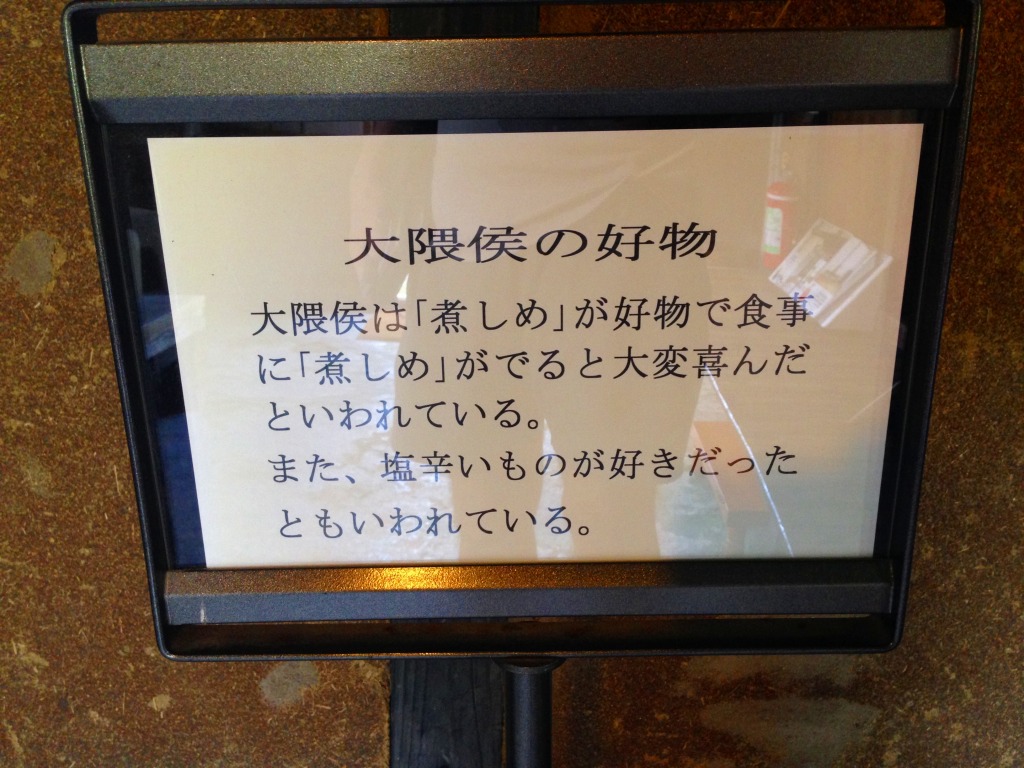 大隈侯の好物
大隈侯は「煮しめ」が好物で食事
に「煮しめ」がでると大変喜んだ
といわれている。
また、塩辛いものが好きだった
ともいわれている。